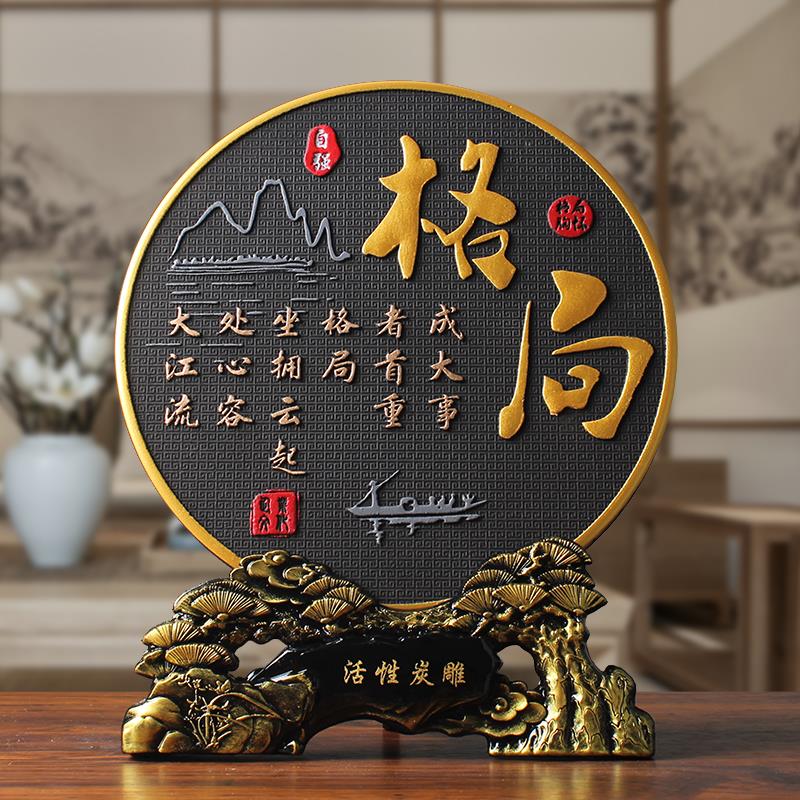 格局
自强
成大事
者首重
格局
坐拥云起
处心容
大江流
活性炭雕